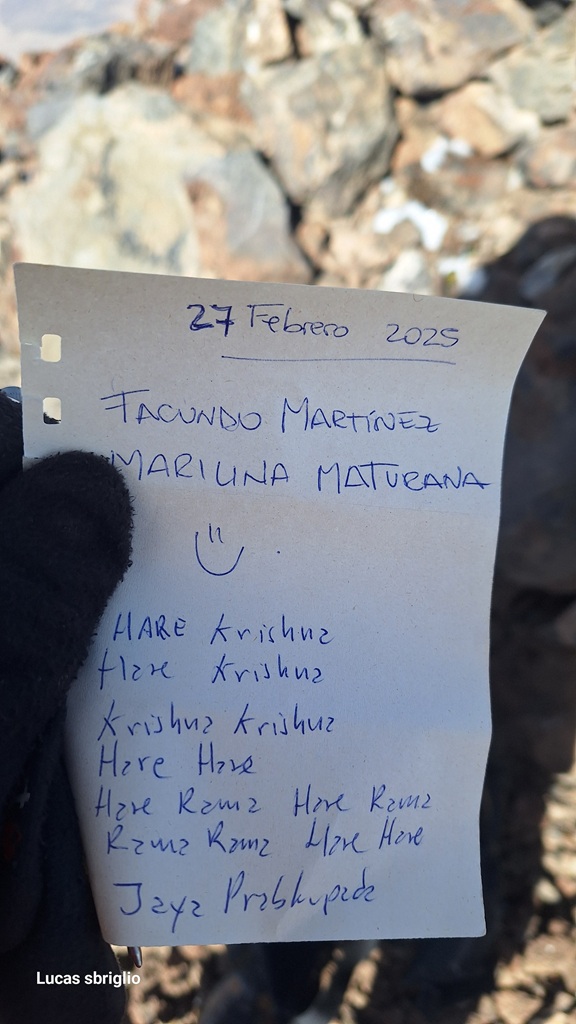 27 Febrero 2025
FACUNDO MARTÍNEZ
MARILINA MATURANA
HARE Krishna
Hare Krishna
Krishna Krishna
Hare Hare
Hare Rama Hare Rama
Rama Rama Hare Hare
Jaya Prabhupada
Lucas sbriglio